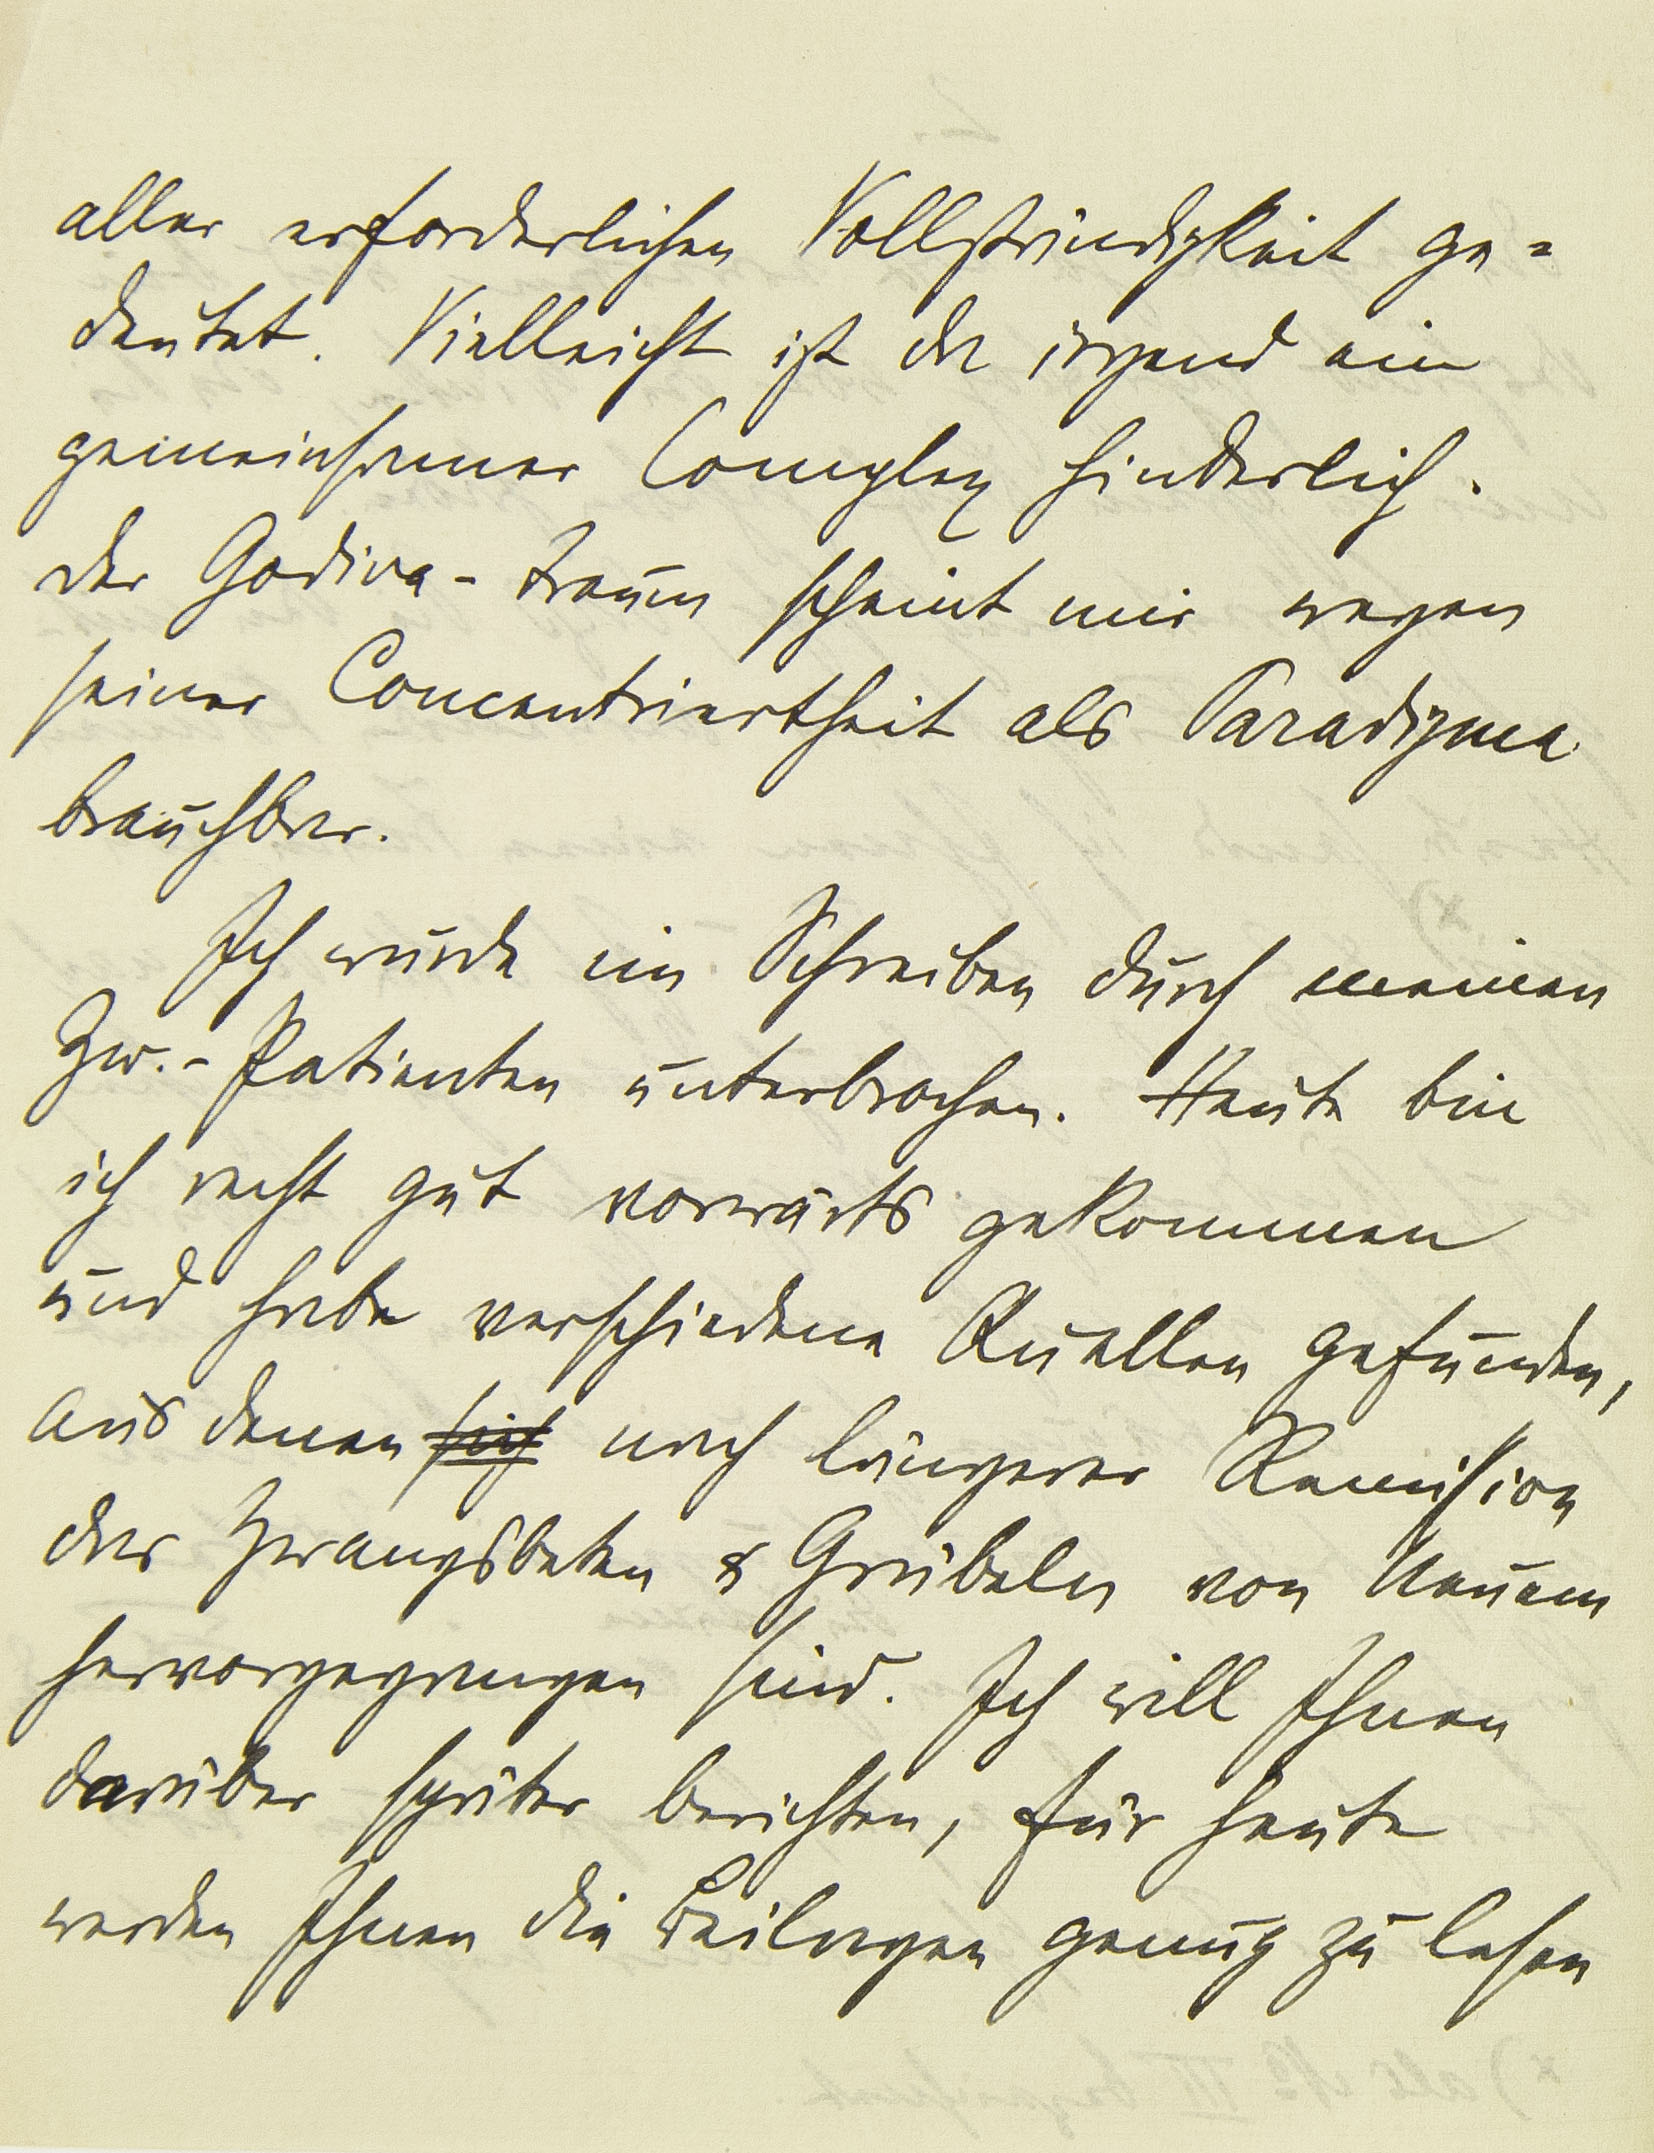 aller erforderlichen Vollständigkeit ge=
deutet. Vielleicht ist da irgend ein
gemeinsamer Complex hinderlich.
Der Godiva-Traum scheint mir wegen
seiner Concentriertheit als Paradigma
brauchbar.
Ich wurde im Schreiben durch meinen
Zw.-Patienten unterbrochen. Heute bin
ich recht gut vorwärts gekommen
und habe verschiedene Quellen gefunden,
aus denen sich nach längerer Remission
das Zwangsbeten & Grübeln von Neuem
hervorgegangen sind. Ich will Ihnen
darüber später berichten, für heute
werden Ihnen die Beilagen genug zu lesen